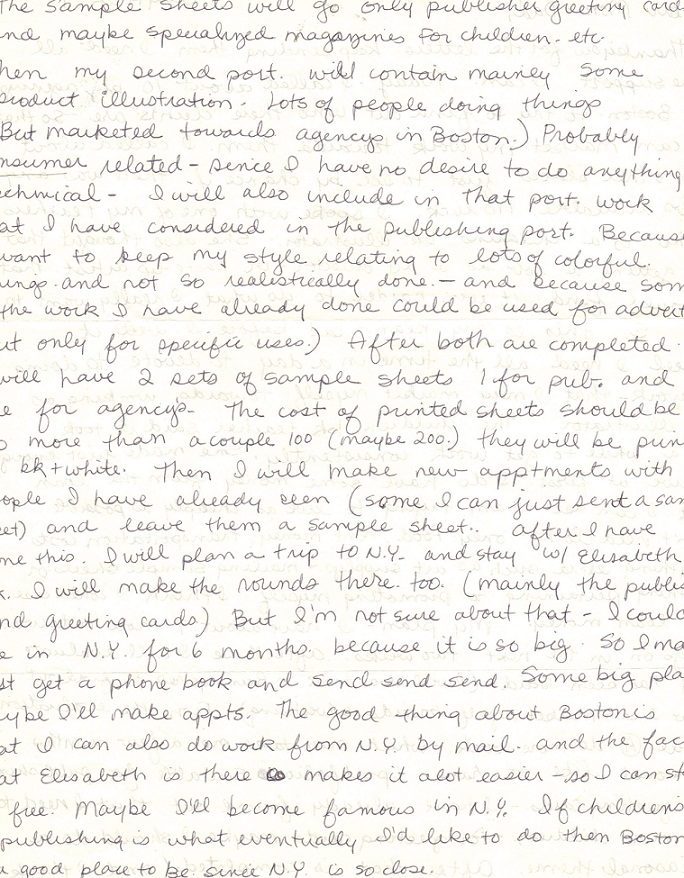 The sample sheets will go only publisher greeting card
nd maybe specialized magazines for children. etc.
hen my second port. will contain mainly some
product illustration. Lots of people doing things
But marketed towards agencys in Boston.) Probably
nsumer related - sence I have no desire to do anything
echnical - I will also include in that port. work
at I have considered in the publishing port. Because
want to keep my style relating to lots of colorful.
ings. and not so realistically done. - and because som
the work I have already done could be used for advert
ut only for specific uses.) After both are completed.
will have 2 sets of sample sheets 1 for pub. and
e for agencys. The cost of printed sheets should be
o more than a couple 100 (maybe 200.) they will be prin
bk + white. Then I will make new apptments with
ople I have already seen (some I can just sent a sam
eet) and leave them a sample sheet.. after I have
ne this. I will plan a trip to N.Y. and stay w/ Elisabeth
. I will make the rounds there. too. (mainly the publis
nd greeting cards.) But I'm not sure about that - I could
e in N.Y. for 6 months. because it is so big. So I ma
st get a phone book and send send send. Some big pla
ybe I'll make appts. The good thing about Boston is
at I can also do work from N.Y. by mail. and the fac
at Elisabeth is there makes it alot easier - so I can st
free. Maybe I'll become famous in N.Y. If childrens
publishing is what eventually I'd like to do then Boston
a good place to be since N.Y. is so close.